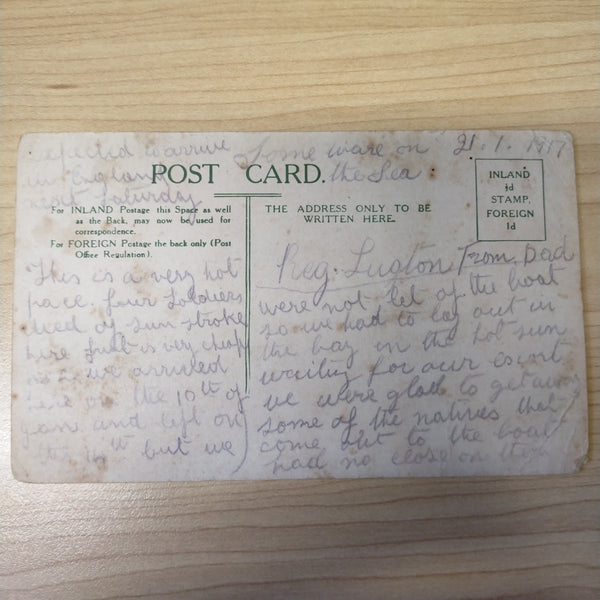 expected to arrive
in England
next Saturday
Some ware on
the Sea
21.1.1917
POST CARD.
INLAND
½d
STAMP,
FOREIGN
1d
For INLAND Postage this Space as well
as the Back, may now be used for
correspondence.
For FOREIGN Postage the back only (Post
Office Regulation).
THE ADDRESS ONLY TO BE
WRITTEN HERE.
Reg. Luxton From Dad
This is a very hot
pace. four Soldiers
died of sun-stroke
here fruit is very cheap
we arrived
here on the 10th of
Jan and left on
the 14th but we
were not let of the boat
so we had to lay out in
the bay in the hot sun
waiting for our escort
we were glad to get away
some of the natives that
come out to the boat
had no close on